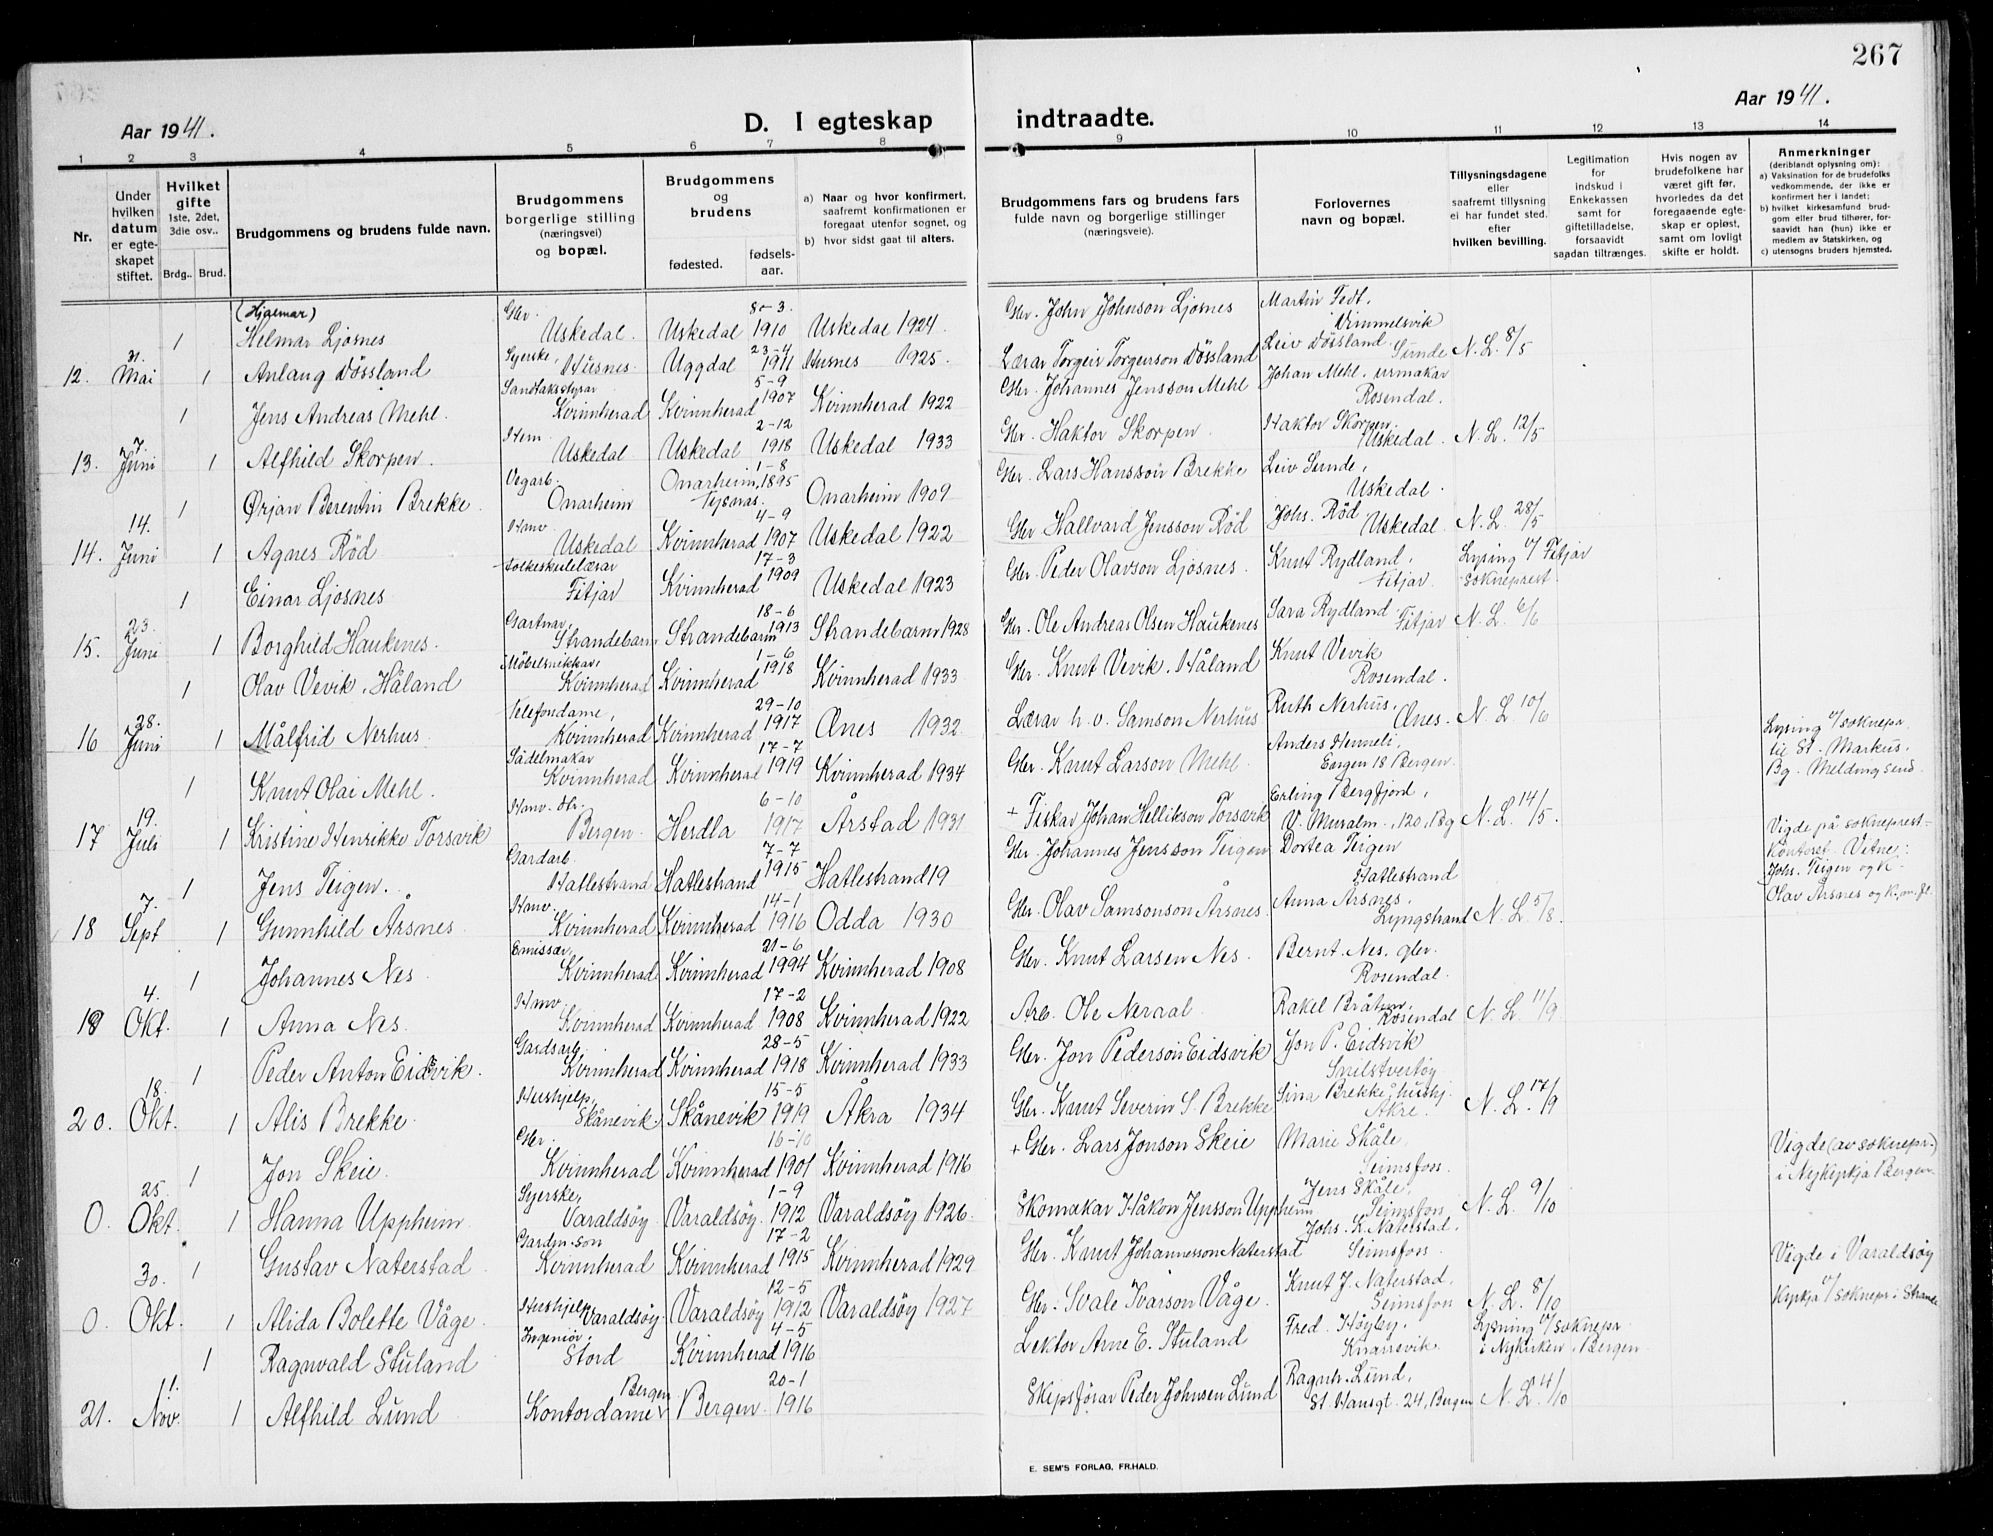 267
Aar 1941.
D. I egteskap indtraadte.
Aar 1941.
1 2 3 4 5 6 7 8 9 10 11 12 13 14
Nr.
Under hvilken datum er egteskapet stiftet.
Hvilket gifte
1ste, 2det, 3die osv..
Brdg.. Brud.
Brudgommens og brudens fulde navn.
Brudgommens borgerlige stilling (næringsvei) og bopæl.
Brudgommens og brudens
fødested. fødselsaar.
a) Naar og hvor konfirmert, saafremt konfirmationen er foregaat utenfor sognet, og
b) hvor sidst gaat til alters.
Brudgommens fars og brudens fars fulde navn og borgerlige stillinger (næringsveie).
Forlovernes navn og bopæl.
Tillysningsdagene eller saafremt tillysning ei har fundet sted. efter hvilken bevilling.
Legitimation for indskud i Enkekassen samt for giftetilladelse, forsaavidt saadan tiltrænges.
Hvis nogen av brudefolkene har været gift før, hvorledes da det foregaaende egteskap er opløst, samt om lovligt skifte er holdt.
Anmerkninger
(deriblandt oplysning om):
a) Vaksination for de brudefolks vedkommende, der ikke er konfirmert her i landet;
b) hvilket kirkesamfund brudgom eller brud tilhører, forsaavidt han (hun) ikke er medlem av Statskirken, og
c) utensogns bruders hjemsted.
(Hjalmar)
1 Helmar Ljosnes Gbr. Uskedal. Uskedal 8-3. 1910 Uskedal 1924 Gbr. John Johnson Ljosnes Martin Fedt, Dimmelsvik
12. 31. Mai 1 Anlaug Døssland Syerske, Husnes. Uggdal 23-4 1911 Husnes 1925. Lærar Torgeir Torgerson Døssland Leiv Døssland. Sunde N. L. 8/5
1 Jens Andreas Mehl. Sandtaksstyrar Kvinnherad Kvinnherad 5-9 1907 Kvinnherad 1922 Gbr. Johannes Jensson Mehl Johan Mehl, urmakar Rosendal.
13. 7. Juni 1 Alfhild Skorpen. Hem. Uskedal Uskedal 2-12 1918 Uskedal 1933 Gbr. Haktor Skorpen. Haktor Skorpen. Uskedal. N. L. 12/5
1 Ørjan Berentin Brekke. Vegarb. Onarheim Onarheim, Tysnes. 1-8 1895 Onarheim 1909 Gbr. Lars Hansson Brekke Leiv Sunde, Uskedal.
14. 14. Juni 1 Agnes Rød Hanv. Uskedal Kvinnherad 4-9 1907 Uskedal 1922 Gbr Hallvard Jensson Rød Johs. Rød Uskedal. N. L. 28/5
1 Einar Ljosnes Folkeskulelærar Fitjar Kvinnherad 17-3 1909 Uskedal 1923 Gbr. Peder Olavson Ljosnes. Knut Rydland, Fitjar. Lysing v/ Fitjar sokneprest.
15. 23. Juni 1 Borghild Haukenes. Gartnar, Strandebarm Strandebarm 18-6 1913 Strandebarm 1928 Gbr. Ole Andreas Olsen Haukenes Sara Rydland Fitjar N. L. 6/6
1 Olav Vevik. Håland Møbelsnikkar, Kvinnherad Kvinnherad 1-6 1918 Kvinnherad 1933 Gbr. Knut Vevik. Håland Knut Vevik Rosendal.
16 28. Juni 1 Målfrid Nerhus. Telefondame, Kvinnherad Kvinnherad 29-10 1917 Ænes 1932 Lærar h. v. Samson Nerhus Ruth Nerhus, Ænes. N. L. 10/6
Lysing v/ soknepr. til St. Markus. Bg. Melding send.
1 Knut Olai Mehl. Sadelmakar Kvinnherad Kvinnherad 17-7 1919 Kvinnherad 1934 Gbr. Knut Larson Mehl. Anders Henneli, 18 Bergen.
17 19. Juli 1 Kristine Henrikke Torsvik Hanv. Bergen. Herdla 6-10 1917 Årstad 1931 + Fiskar Johan Hellikson Torsvik Erling Bergfjord, V. Muralm. 120, Bg N. L. 14/5.
Vigde på sokneprestkontoret. Vitne: Johs. Teigen og K. Olav Årsnes og K.
1 Jens Teigen. Gardarb. Hatlestrand Hatlestrand 7-7 1915 Hatlestrand 19 Gbr. Johannes Jensson Teigen Dortea Teigen Hatlestrand
18 7. Sept 1 Gunnhild Årsnes. Hanv. Kvinnherad Kvinnherad 14-1 1916 Odda 1930 Gbr. Olav Samsonson Årsnes. Anna Årsnes. Lyngstrand N. L. 5/8.
1 Johannes Nes. Emissær, Kvinnherad Kvinnherad 21-6 1994 Kvinnherad 1908 Gbr. Knut Larsen Nes. Bernt. Nes, gbr. Rosendal.
19 4. Okt. 1 Anna Nes. Hanv. Kvinnherad Kvinnherad 17-2 1908 Kvinnherad 1922 Arb. Ole Neraal. Rakel Bråtun, Rosendal N. L. 11/9
1 Peder Anton Eidsvik. Gardsarb. Kvinnherad Kvinnherad 28-5 1918 Kvinnherad 1933 Gbr. Jon Pederson Eidsvik Jon P. Eidsvik Snilstveitøy
20. 18. Okt. 1 Alis Brekke. Hushjelp, Skånevik. Skånevik 15-5 1919 Åkra 1934 Gbr. Knut Severin S. Brekke Sina Brekke, hushj. Åkre. N. L. 17/9
1 Jon Skeie. Gbr. Kvinnherad Kvinnherad 16-10 1901 Kvinnherad 1916 + Gbr. Lars Jonson Skeie Marie Skåle, Seimsfoss.
Vigde (av soknepr.) i Nykyrkja Bergen.
0. 25. Okt. 1 Hanna Uppheim Syerske, Varaldsøy Varaldsøy. 1-9 1912 Varaldsøy 1926. Skomakar Håkon Jensson Uppheim Jens Skåle, Seimsfoss N. L. 9/10
1 Gustav Naterstad Gardm. son Kvinnherad Kvinnherad 17-2 1915 Kvinnherad 1929 Gbr. Knut Johannesson Naterstad Johs. K. Naterstad, Seimsfoss.
Vigde i Varaldsøy Kyrkja v/ soknepr i Strande
0. 30. Okt. 1 Alida Bolette Våge. Hushjelp Varaldsøy. Varaldsøy 12-5 1912 Varaldsøy 1927 Gbr. Svale Ivarson Våge. Knut J. Naterstad, Seimsfoss N. L. 8/10
1 Ragnvald Stuland Ingeniør. Stord Kvinnherad 4-5 1916 Lektor Arne E. Stuland Fred. Høyby, Knarrevik. Lysning v/ soknepr. i Nykirken, Bergen.
21. 1. Nov. 1 Alfhild Lund Kontordame Bergen Bergen. 20-1 1916 Skipsførar Peder Johnsen Lund Ragnh. Lund, St. Hansgt. 24, Bergen N. L. 4/10
E. SEM'S FORLAG, FR.HALD.